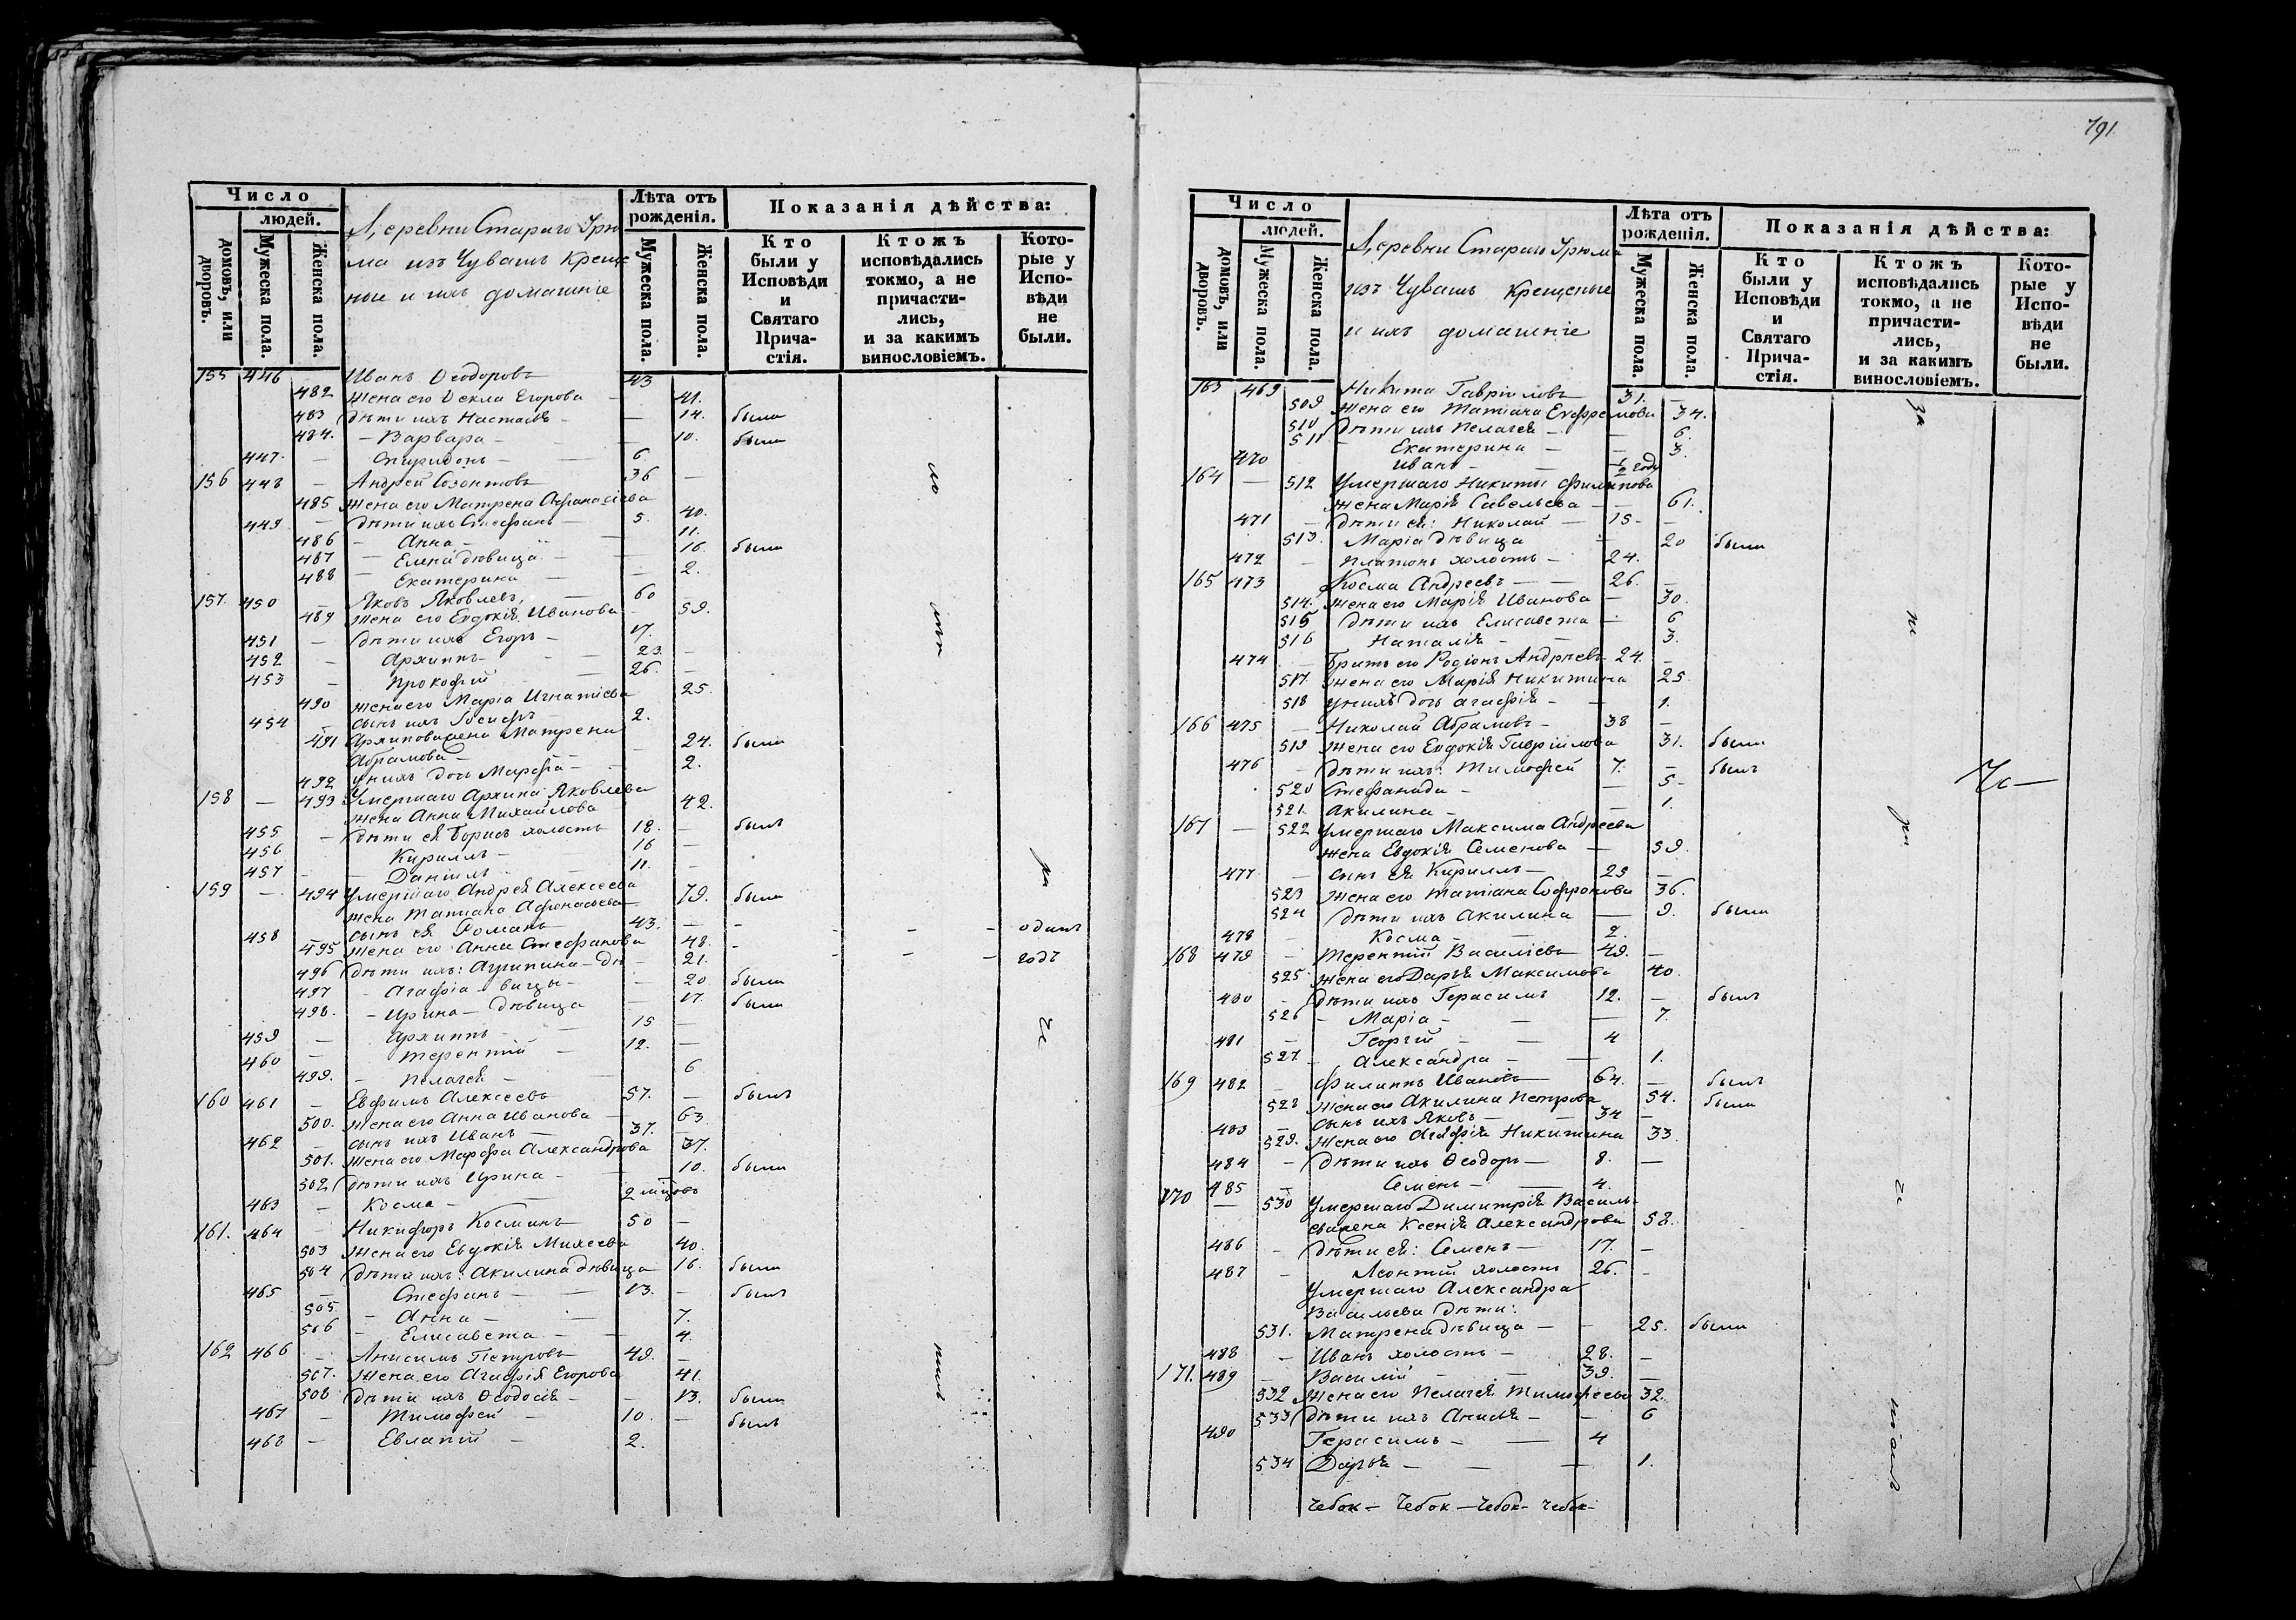 Число
людей.
домовъ, или дворовъ.
Мужеска пола.
Женска пола.
Деревни Стараго Урю
ма изъ Чувашъ Креще
ные и ихъ домашніе
Лѣта отъ рожденія.
Мужеска пола.
Женска пола.
Показанія дѣйства:
Кто были у Исповѣди и Святаго Прича-стія.
Ктожъ исповѣдались токмо, а не причасти-лись, и за какимъ винословіемъ.
Кото-рые у Испо-вѣди не были.
155 446 Иванъ Ѳеодоровъ 43
482 Жена его Ѳекла Егорова — 41.
483 Дѣти ихъ Настасья — — 14. была
484. — Варвара — — 10. была
447. — Спиридонъ — 6
156 448 — Андрей Созонтовъ 36 —
485 Жена его Матрена Афанасіева 40.
449 — Дѣти ихъ Стефанъ — 5.
486 — Анна — 11.
487 — Елена дѣвица — 16. была
488 — Екатерина — 2.
157. 450 — Яковъ Яковлевъ, — 60
489 Жена его Евдокія Иванова — 59.
451 — Дѣти ихъ Егоръ — 17.
452 — Архиппъ — 23. —
453 — Прокофій 26. —
490 Жена его Марія Игнатіева 25.
454 — Сынъ ихъ Іосифъ — 2.
491 Архипова жена Матрена
Абрамова — 24. была
492 У нихъ дочь Марфа — 2.
158 — 493 Умершаго Архипа Яковлева
жена Анна Михайлова 42.
455 — Дѣти ея Борисъ холостъ 18. — былъ
456 Кириллъ — 16 —
457 — Даніилъ — 11. —
159 — 494 Умершаго Андрея Алексеева
жена Татиана Афонасьева 79. была
458 — Сынъ ея Романъ 43. — — — — — одинъ
495 Жена его Анна Стефанова 48. — — — — годъ
496 Дѣти ихъ: Агрипина — дѣ — 21.
497 — Агафіа — вицы — — 20 была
498. — Ирина — дѣвица — 17. была
459 — Архиппъ — 15 —
460 — Терентій — 12. —
499. — Пелагея — 6
160 461 — Евфимъ Алексеевъ 57. — былъ
500. Жена его Анна Иванова — 63
462 — Сынъ ихъ Иванъ — 37. —
501. Жена его Марфа Александрова 37.
502 Дѣти ихъ Ирина — 10. была
463 — Косма — 2 мѣ
161. 464 — Никифоръ Косминъ 50 —
503 Жена его Евдокія Михеева 40.
504 Дѣти ихъ: Акилина дѣвица 16. была
465 — Стефанъ — 13. — былъ
505 — Анна — 7.
506 — Елисавета — 4.
162 466 — Анисимъ Петровъ 49. —
507. Жена его Агафія Егорова 41.
508 Дѣти ихъ Ѳеодосія — — 13. была
467 — Тимофей — 10. — былъ
468 — Евлапій — 2.
791
Число
людей.
домовъ, или дворовъ.
Мужеска пола.
Женска пола.
Деревни Стараго Урюма
изъ Чувашъ Крещеные
и ихъ домашніе
Лѣта отъ рожденія.
Мужеска пола.
Женска пола.
Показанія дѣйства:
Кто были у Исповѣди и Святаго Прича-стія.
Ктожъ исповѣдались токмо, а не причасти-лись, и за какимъ винословіемъ.
Кото-рые у Испо-вѣди не были.
163 469 Никита Гавріиловъ 31. —
509 Жена его Татіана Ефремова 34.
510 Дѣти ихъ Пелагея — — 6.
511 — Екатерина — — 3.
470 Иванъ — ½ года
164 — 512 Умершаго Никиты Филипова
жена Марія Савельева — — 61.
471 — Дѣти ея: Николай — 15 — —
513. Маріа дѣвица — 20 была
472 — Платонъ холостъ — 24.
165 473 Косма Андреевъ — — 26. —
514. Жена его Марія Иванова — 30.
515 Дѣти ихъ Елисавета — 6
516 Наталія — — 3.
474 — Братъ его Родіонъ Андреевъ 24. —
517. Жена его Марія Никитина 25
518 У нихъ дочь Агафія — — 1.
166 475 — Николай Абрамовъ — 38 —
519 Жена его Евдокія Гавріилова 31. была
476 — Дѣти ихъ: Тимофей 7. — былъ
520 Стефанида — — 5 —
521. Акилина — — 1.
167 — 522 Умершаго Максима Андреева
жена Евдокія Семенова — 59.
477 — Сынъ ея Кириллъ — 25 —
523 Жена его Татіана Софронова 36.
524 Дѣти ихъ Акилина — 9. была
478 — Косма — — 2.
168 479 — Терентій Василіевъ 49. —
525. Жена его Дарья Максимова 40.
480 — Дѣти ихъ Герасимъ 12. — былъ
526 — Маріа — — — 7.
481 — Георгій — — 4
527. — Александра — — 1.
169 482 — Филиппъ Ивановъ — 64. — былъ
528 Жена его Акилина Петрова 54. была
483 — Сынъ ихъ Яковъ — — 34 —
529. Жена его Агафія Никитина 33.
484 — Дѣти ихъ Ѳеодоръ — 8. —
485 — Семенъ — — 4.
170 — 530 Умершаго Димитрія Василь
ева жена Ксенія Александрова 58.
486 — Дѣти ея: Семенъ — 17. —
487 — Леонтій холостъ 26. —
Умершаго Александра
Васильева дѣти:
531. Матрена дѣвица — — 25. была
488 — Иванъ холостъ — 28. —
171. 489 — Василій — — 39. —
532 Жена его Пелагея Тимофеева 32.
533 Дѣти ихъ Анисья — — 6
490 Герасимъ — — 4
534 Дарья — — — 1.
Чебок — Чебок — Чебок — Чебок —